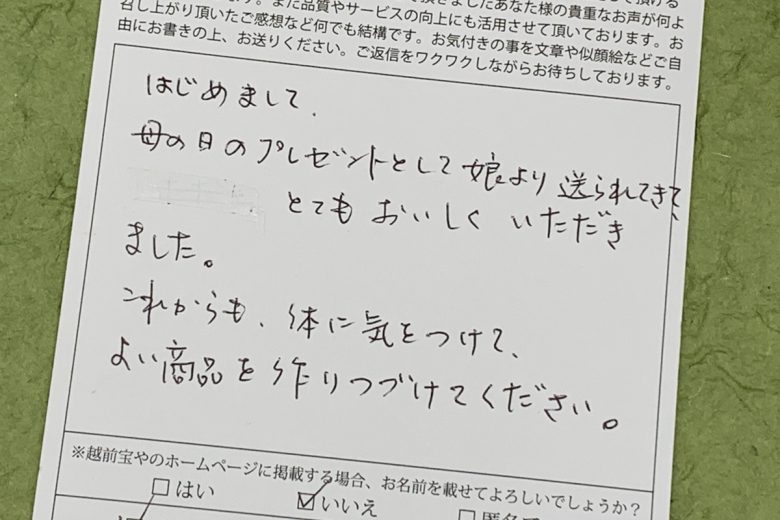 あなた様の貴重なお声が何よ
召し上がり頂いたご感想など何でも結構です。お気付きの事を文章や似顔絵などご自
由にお書きの上、お送りください。ご返信をワクワクしながらお待ちしております。
はじめまして、
母の日のプレゼントとして娘より送られてきて、
とてもおいしくいただき
ました。
これからも、体に気をつけて、
よい商品を作りつづけてください。
※越前宝やのホームページに掲載する場合、お名前を載せてよろしいでしょうか?
はい いいえ